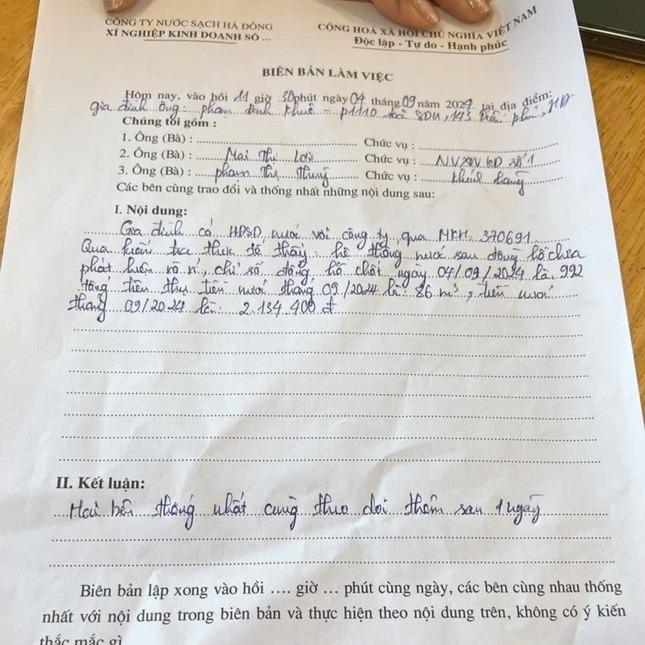 CÔNG TY NƯỚC SẠCH HÀ ĐÔNG
XÍ NGHIỆP KINH DOANH SỐ ...
CỘNG HOÀ XÃ HỘI CHỦ NGHĨA VIỆT NAM
Độc lập - Tự do - Hạnh phúc
BIÊN BẢN LÀM VIỆC
Hôm nay, vào hồi 11 giờ 30 phút ngày 04 tháng 09 năm 2024 tại địa điểm:
gia đình ông: phạm đình Khuê - p1110 toà SDU, 143 trần phú, HĐ
Chúng tôi gồm :
1. Ông (Bà) : Chức vụ :
2. Ông (Bà) : Mai Thị Chức vụ : N.V
3. Ông (Bà) : phạm Thị Chức vụ : khách hàng
Các bên cùng trao đổi và thống nhất những nội dung sau:
I. Nội dung:
Gia đình có nước với công ty, qua MKH: 370691
Qua kiểm tra thực tế thấy: hệ thống nước sau đồng hồ chưa
phát hiện rò rỉ, chỉ số đồng hồ chốt ngày 04/09/2024 là 992
tổng tiêu thụ tiền nước tháng 09/2024 là: 86 m³, tiền nước
tháng 09/2024 là: 2.134.400 đ
II. Kết luận:
Hai bên thống nhất cùng theo dõi thêm sau 1 ngày
Biên bản lập xong vào hồi .... giờ ... phút cùng ngày, các bên cùng nhau thống
nhất với nội dung trong biên bản và thực hiện theo nội dung trên, không có ý kiến
thắc mắc gì